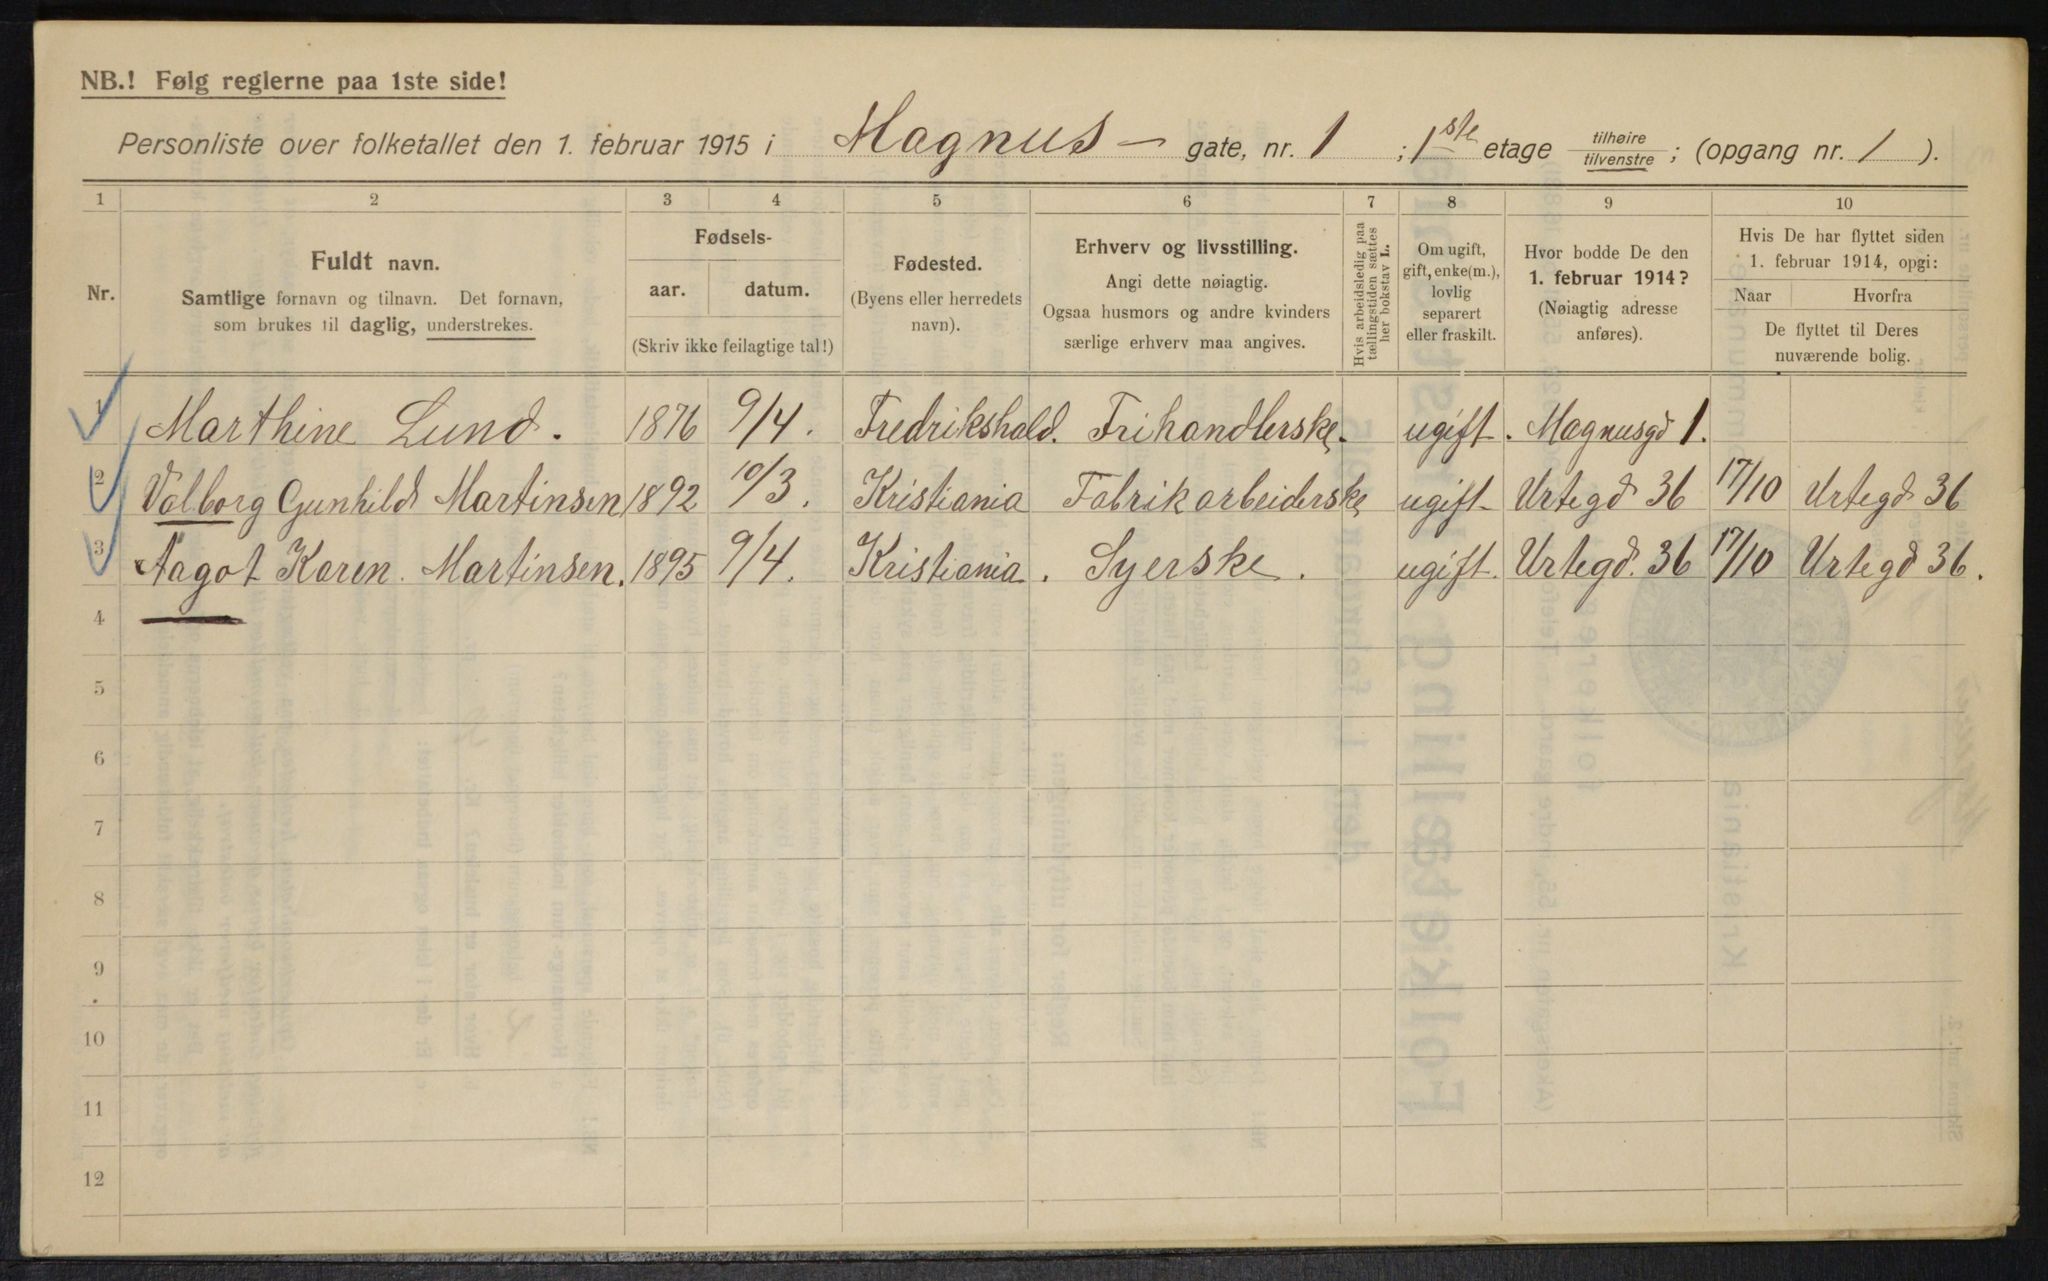 NB.! Følg reglerne paa 1ste side!
Personliste over folketallet den 1. februar 1915 i Magnus- gate, nr. 1 ; 1ste etage tilhøire tilvenstre ; (opgang nr. 1 ).
1 2 3 4 5 6 7 8 9 10
Nr.
Fuldt navn.
Samtlige fornavn og tilnavn. Det fornavn,
som brukes til daglig, understrekes.
Fødsels-
aar. datum.
(Skriv ikke feilagtige tal!)
Fødested.
(Byens eller herredets
navn).
Erhverv og livsstilling.
Angi dette nøiagtig.
Ogsaa husmors og andre kvinders
særlige erhverv maa angives.
Hvis arbeidsledig paa
tællingstiden sættes
her bokstav L.
Om ugift,
gift, enke(m.),
lovlig
separert
eller fraskilt.
Hvor bodde De den
1. februar 1914?
(Nøiagtig adresse
anføres).
Hvis De har flyttet siden
1. februar 1914, opgi:
Naar Hvorfra
De flyttet til Deres
nuværende bolig.
1 Marthine Lund. 1876 9/4. Fredrikshald. Frihandlerske. ugift. Magnusgd 1.
2 Valborg Gunhild Martinsen 1892 10/3. Kristiania Fabrikarbeiderske ugift. Urtegd 36 17/10 Urtegd 36
3 Aagot Karen. Martinsen. 1895 9/4. Kristiania. Syerske. ugift. Urtegd. 36 17/10 Urtegd 36.
4
5
6
7
8
9
10
11
12